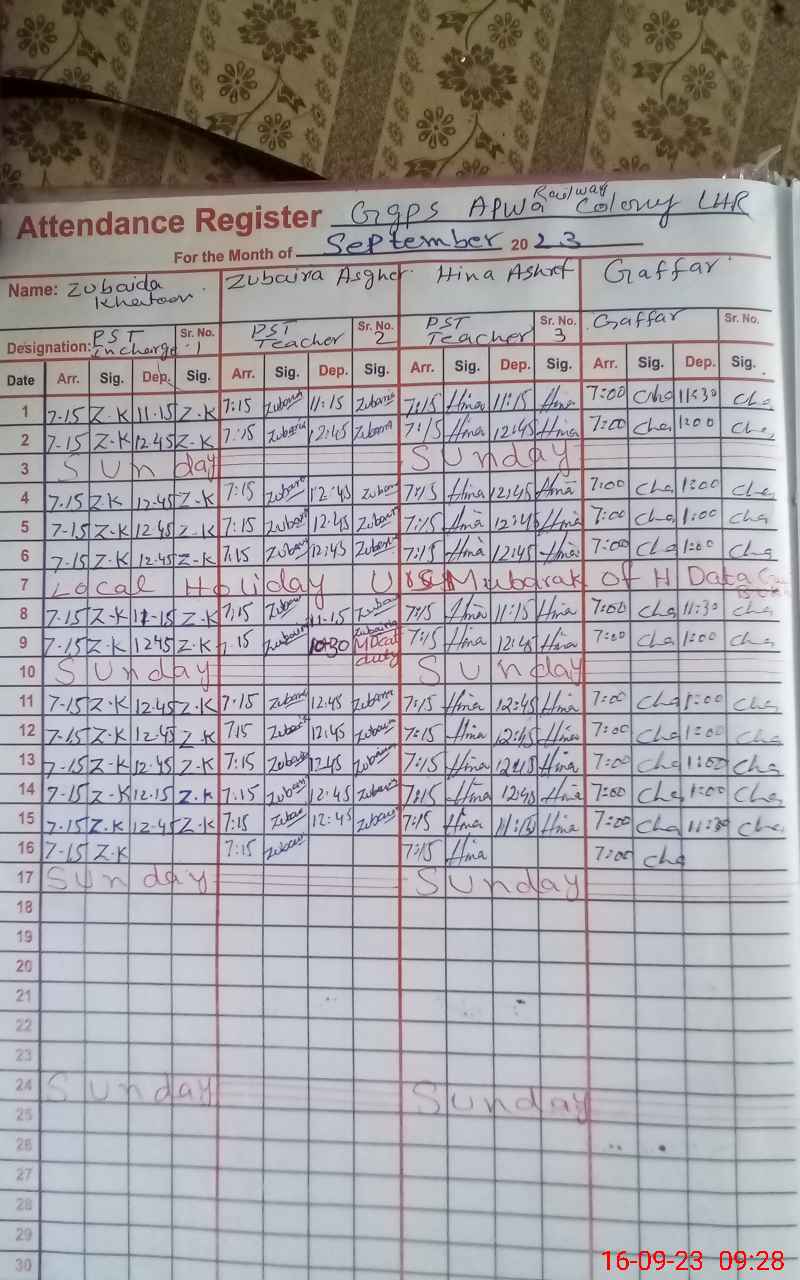 Attendance Register GGPS APWA Railway Colony LHR
For the Month of September 2023
Name: Zubaida Khatoon Zubaira Asgher Hina Ashraf Gaffar
Designation: PST Incharge Sr. No. 1 PST Teacher Sr. No. 2 PST Teacher Sr. No. 3 Gaffar Sr. No.
Date Arr. Sig. Dep. Sig. Arr. Sig. Dep. Sig. Arr. Sig. Dep. Sig. Arr. Sig. Dep. Sig.
1 7-15 Z.K 11-15 Z-K 7:15 Zubaira 11:15 Zubaira 7:15 Hina 11:15 Hina 7:00 Cha 11:30 Cha
2 7-15 Z-K 12.45 Z-K 7:15 Zubaira 12:45 Zubaira 7:15 Hina 12:45 Hina 7:00 Cha 1:00 Cha
3 Sunday Sunday
4 7.15 ZK 12-45 Z-K 7:15 Zubaira 12:45 Zubaira 7:15 Hina 12:45 Hina 7:00 Cha 1:00 Cha
5 7-15 Z-K 12.45 Z-K 7:15 Zubaira 12:45 Zubaira 7:15 Hina 12:45 Hina 7:00 Cha 1:00 Cha
6 7-15 Z-K 12.45 Z-K 7.15 Zubaira 12:45 Zubaira 7:15 Hina 12:45 Hina 7:00 Cha 1:00 Cha
7 Local Holiday Urs Mubarak of H Data
8 7-15 Z-K 11-15 Z-K 7:15 Zubair 11.15 Zubaira 7:15 Hina 11:15 Hina 7:00 Cha 11:30 Cha
9 7-15 Z.K 1245 Z.K 7.15 Zubaira 10:30 Zubaira duty 7:15 Hina 12:45 Hina 7:00 Cha 1:00 Cha
10 Sunday Sunday
11 7-15 Z.K 12.45 Z-K 7:15 Zubaira 12:45 Zubaira 7:15 Hina 12:45 Hina 7:00 Cha 1:00 Cha
12 7-15 Z-K 12-45 Z-K 7:15 Zubaira 12:45 Zubaira 7:15 Hina 12:45 Hina 7:00 Cha 1:00 Cha
13 7-15 Z-K 12-45 Z-K 7:15 Zubaira 12:45 Zubaira 7:15 Hina 12:45 Hina 7:00 Cha 1:00 Cha
14 7-15 Z-K 12.15 Z.K 7:15 Zubaira 12:45 Zubaira 7:15 Hina 12:45 Hina 7:00 Cha 1:00 Cha
15 7.15 Z.K 12-45 Z-K 7:15 Zubair 12:45 Zubair 7:15 Hina 11:15 Hina 7:00 Cha 11:30 Cha
16 7-15 Z.K 7:15 Zubair 7:15 Hina 7:00 Cha
17 Sunday Sunday
18
19
20
21
22
23
24 Sunday Sunday
25
26
27
28
29
30
16-09-23 09:28